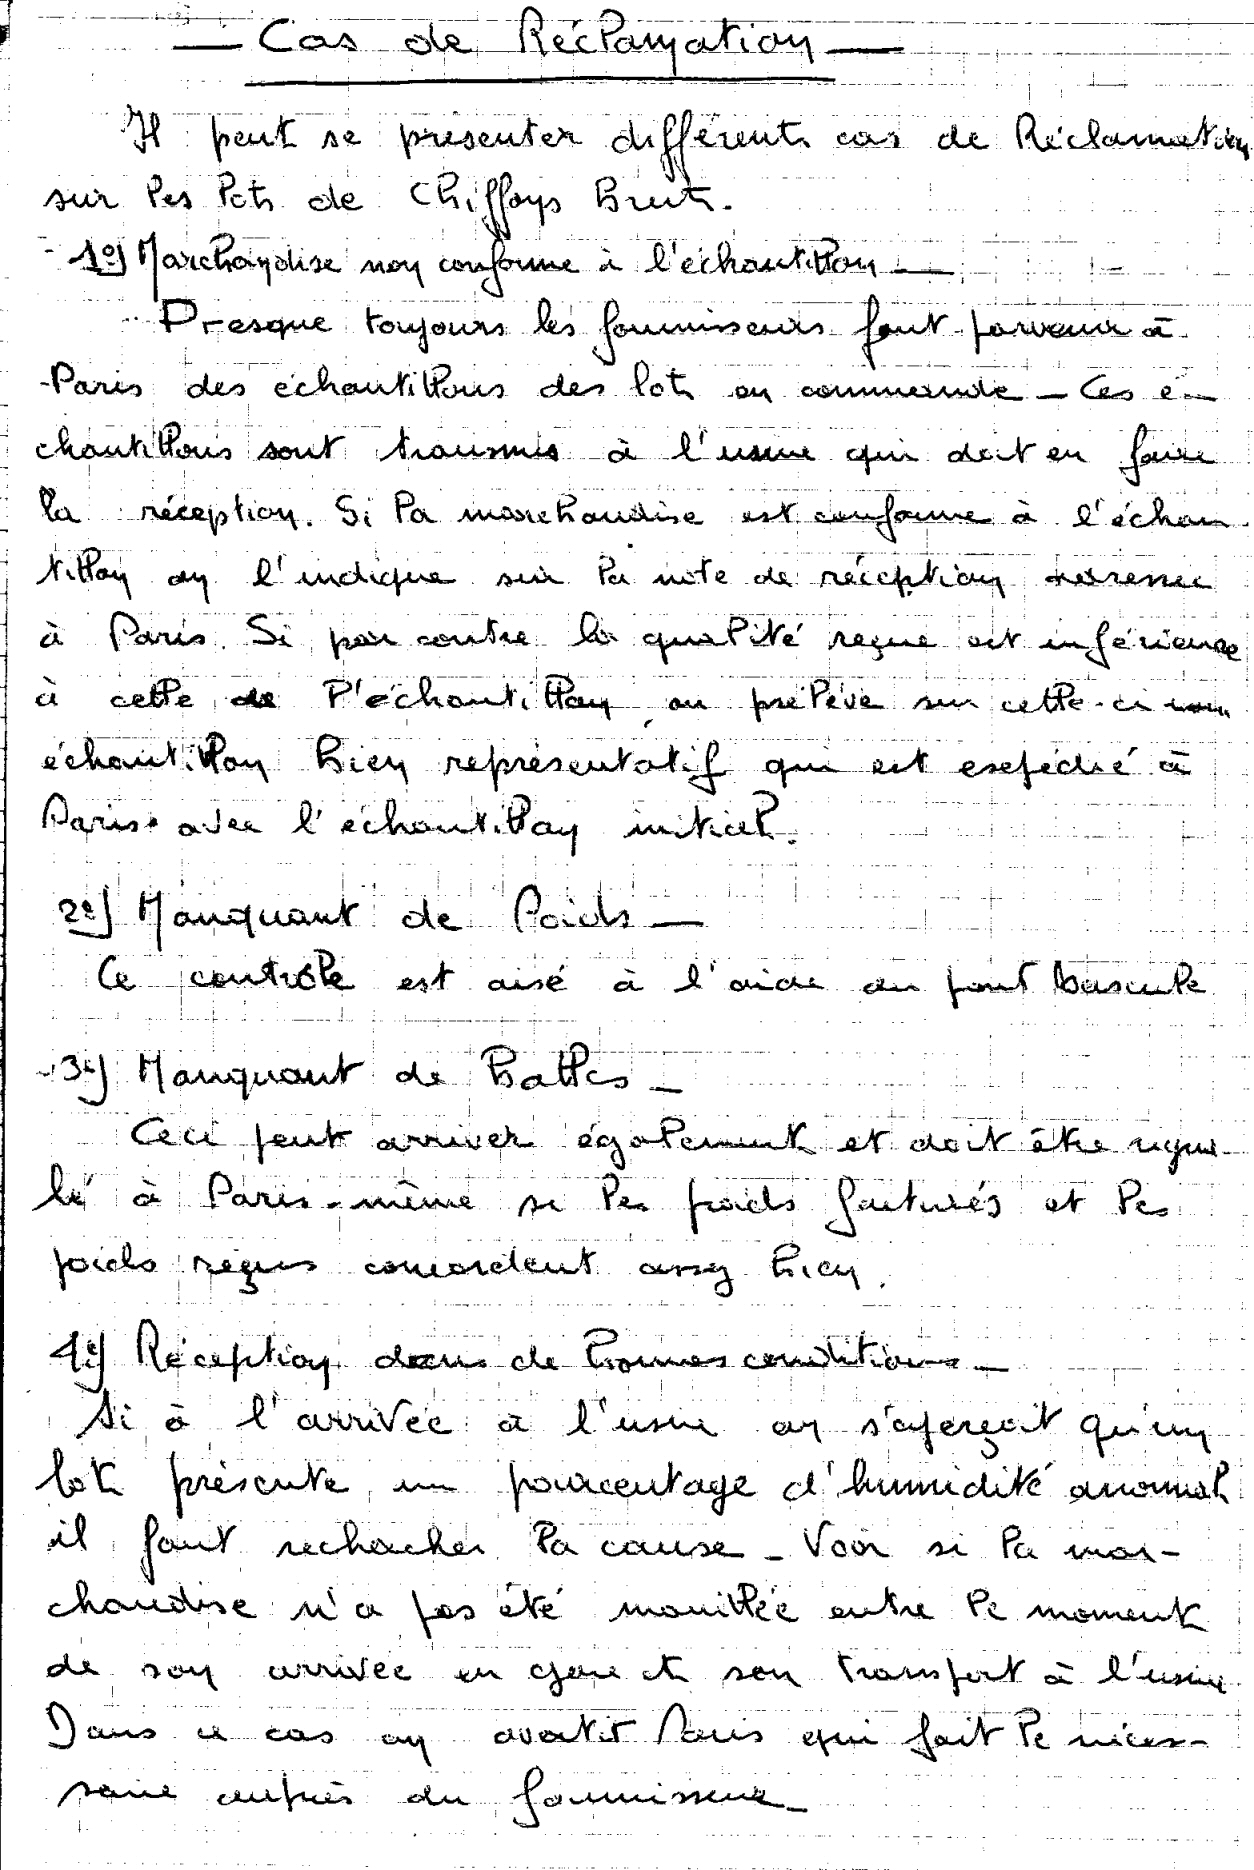 — Cas de Réclamation —
Il peut se présenter différents cas de Réclamation
sur les lots de Chiffons Bruts.
1º) Marchandise non conforme à l'échantillon —
Presque toujours les fournisseurs font parvenir à
Paris des échantillons des lots en commande — Ces é-
chantillons sont transmis à l'usine qui doit en faire
la réception. Si la marchandise est conforme à l'échan
tillon on l'indique sur la note de réception adressée
à Paris. Si par contre la qualité reçue est inférieure
à celle de l'échantillon, on prélève sur celle-ci un
échantillon bien représentatif qui est expédié à
Paris avec l'échantillon initial.
2º) Manquant de Poids —
Ce contrôle est aisé à l'aide du pont bascule
3º) Manquant de Balles —
Ceci peut arriver également et doit être signa-
lé à Paris - même si les poids facturés et les
poids reçus concordent assez bien.
4º) Réception dans de bonnes conditions —
Si à l'arrivée à l'usine on s'aperçoit qu'un
lot présente un pourcentage d'humidité anormal
il faut rechercher la cause — Voir si la mar-
chandise n'a pas été mouillée entre le moment
de son arrivée en gare et son transport à l'usine
Dans ce cas on avertit Paris qui fait le néces-
saire auprès du fournisseur —